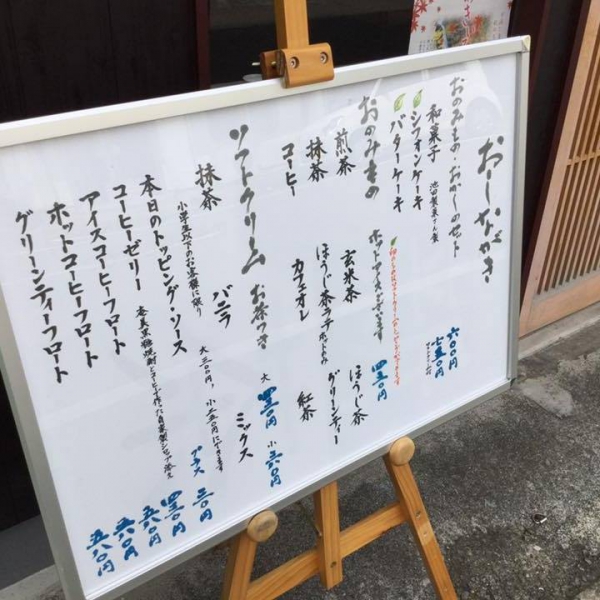 おしながき
おのみもの・おかしのセット
和菓子 池田製菓さん製 六〇〇円
シフォンケーキ 七五〇円
バターケーキ
おのみもの ホットアイスございます 四五〇円
煎茶 玄米茶 ほうじ茶
抹茶 ほうじ茶ラテ グリーンティー
コーヒー カフェオレ 紅茶
ソフトクリーム お茶つき 大 四五〇円 小 三六〇円
抹茶 バニラ ミックス
小学生以下のお客様に限り 大三〇〇円、小二五〇円にできます
本日のトッピング・ソース プラス 三〇円
コーヒーゼリー
アイスコーヒーフロート 五六〇円
ホットコーヒーフロート 五六〇円
グリーンティーフロート 五八〇円